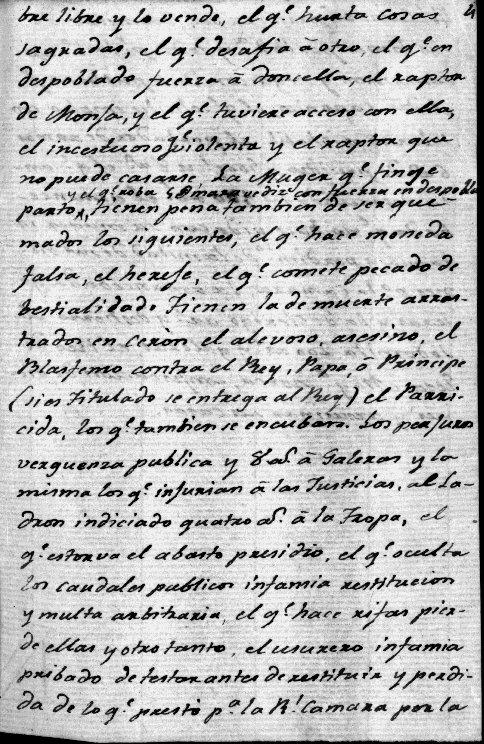 bre libre y lo vende, el q.e hurta cosas
sagradas, el q.e desafia â otro, el q.e en
despoblado fuerza â doncella, el raptor
de Monja, y el q.e tuviere acceso con ella,
el incestuoso q.e violenta y el raptor que
no puede casarse. La Muger q.e finge
y el q.e roba 5 @ maravediz.s con fuerza en despobla
parto, tienen pena tambien de ser que-
mados los siguientes, el q.e hace moneda
falsa, el hereje, el q.e comete pecado de
bestialidad. Tienen la de muerte arras-
trados en ceròn el alevoso, asesino, el
Blasfemo contra el Rey, Papa, ô Principe
(si es Titulado se entrega al Rey) el Parri-
cida, los q.e tambien se encuban. Los perjuros
verguenza publica y 8 a.s â Galeras y la
misma los q.e injurian â las Justicias. al La-
dron indiciado quatro a.s â la Tropa, el
q.e estorva el abasto presidio, el q.e oculta
los caudales publicos infamia restitucion
y multa arbitraria, el q.e hace rifas pier-
de ellas y otro tanto, el usurero infamia
pribado de testar antes de restituir y perdi-
da de lo q.e prestò p.a la R.l Camara por la